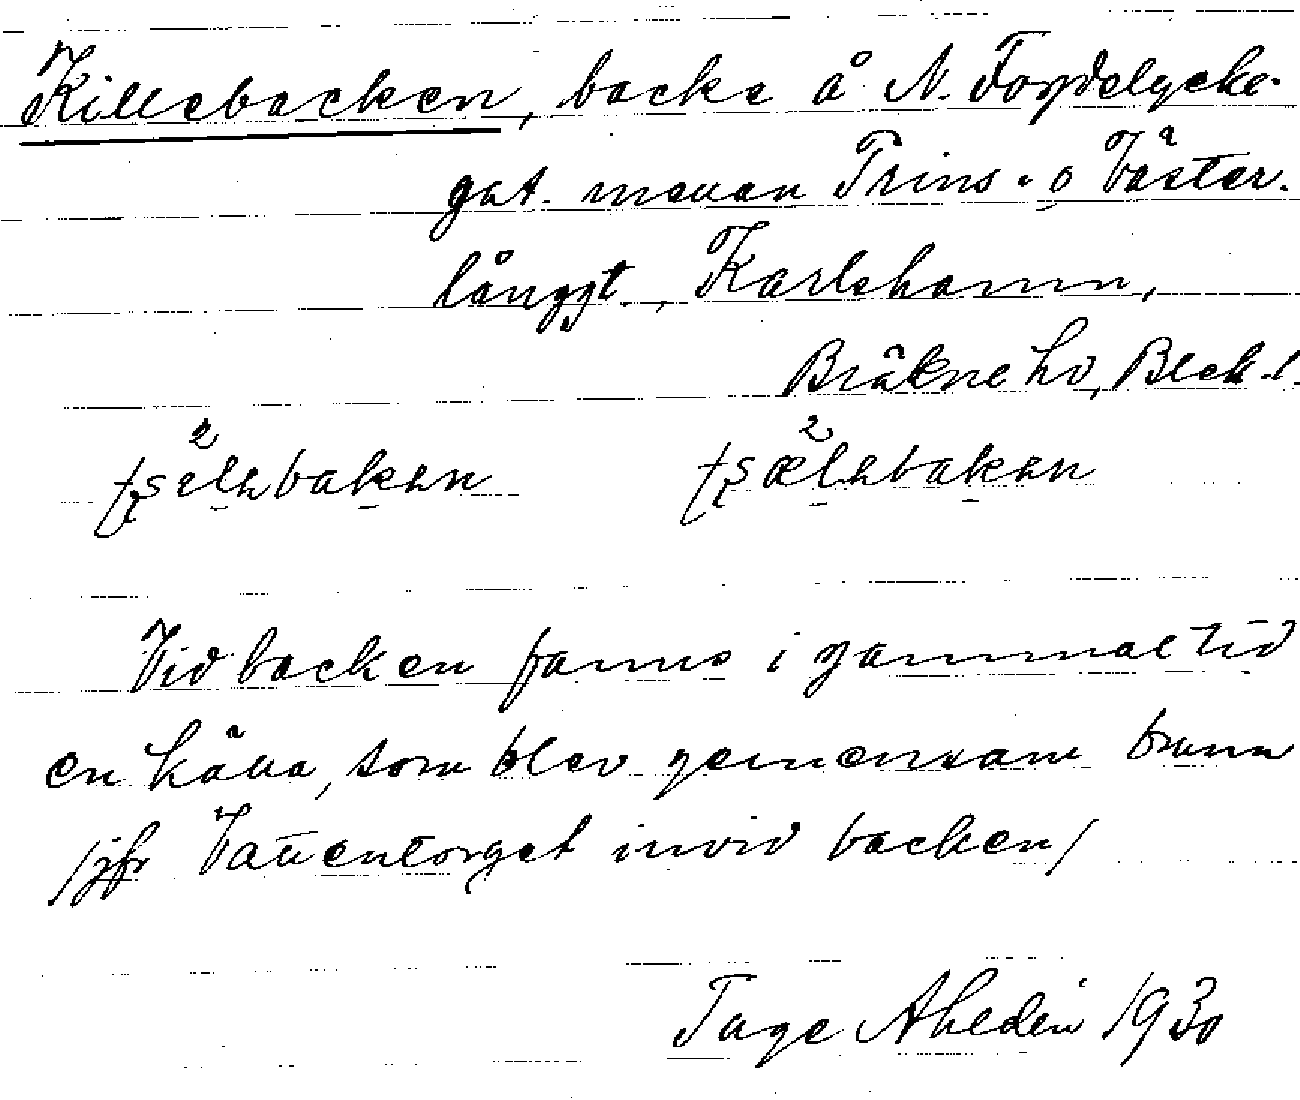 Killebacken, backe å N. Fogdelycke-
gat. mellan Prins- o Väster-
långgt., Karlshamn,
Bräkne hd, Blek. l.
Vid backen fanns i gammal tid
en källa, som blev gemensam brunn
/jfr Vattentorget invid backen/
Tage Ahledin 1930